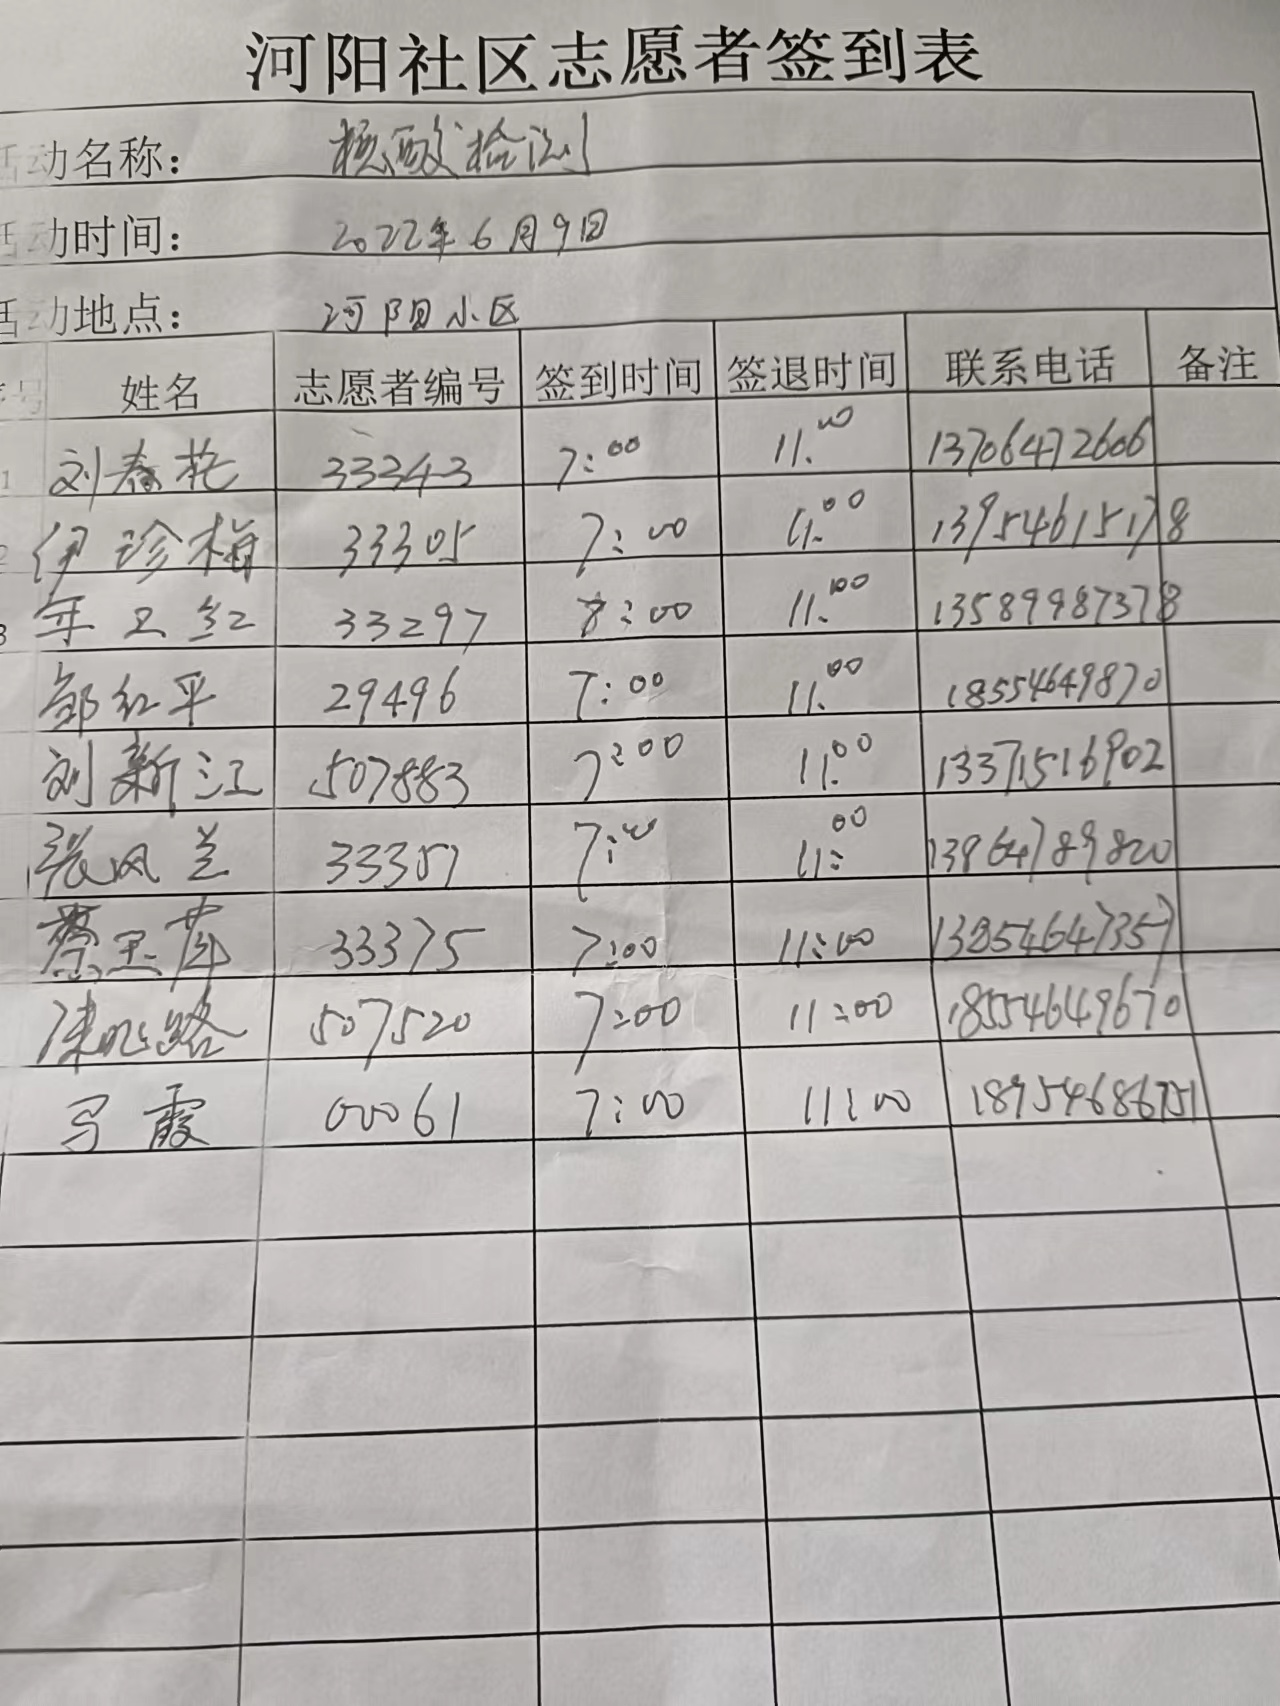 河阳社区志愿者签到表
活动名称： 核酸检测
活动时间： 2022年6月9日
活动地点： 河阳小区
序号 姓名 志愿者编号 签到时间 签退时间 联系电话 备注
1 刘春花 33343 7:00 11:00 13706472606
2 伊珍梅 33305 7:00 11:00 13954615178
3 年卫红 33297 7:00 11:00 13589987378
邹红平 29496 7:00 11:00 18554649870
刘新江 507883 7:00 11:00 13371516902
张风兰 33357 7:00 11:00 13864789820
蔡玉萍 33375 7:00 11:00 13854647357
507520 7:00 11:00 18554649670
马霞 00061 7:00 11:00 18954686751